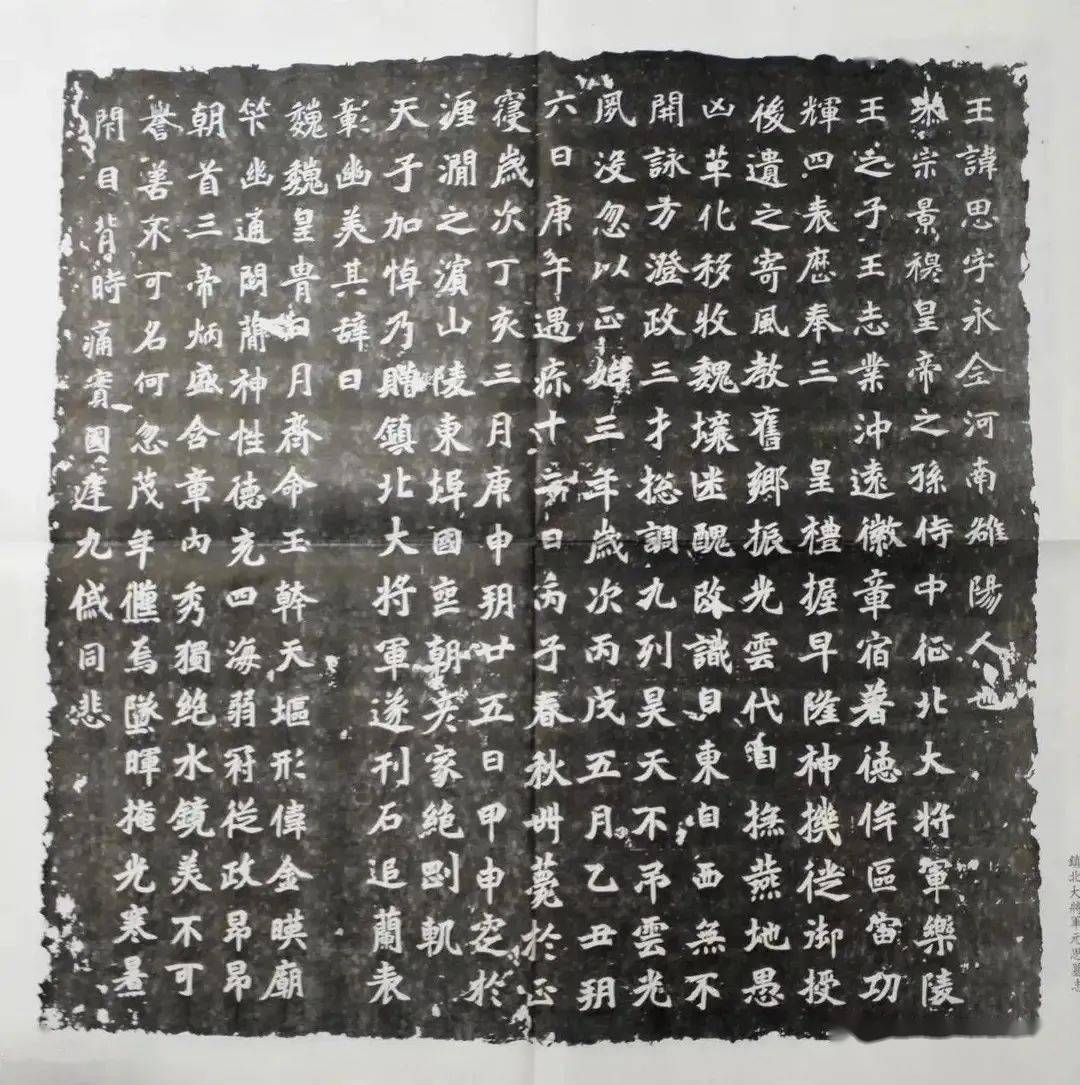 王諱思字永仝河南雒陽人也
恭宗景穆皇帝之孫侍中征北大將軍樂陵
王之子王志業沖遠徽章宿著德侔區宙功
輝四表歷奉三　皇禮握早隆神機徙御授
後遺之寄風教舊鄉振光雲代自　撫燕地愚
凶革化移牧魏壤迷醜改識自東自西無不
開詠方澄政三才揔調九列昊天不吊雲光
夙没忽以正始三年歲次丙戌五月乙丑朔
六日庚午遇疹十二日丙子春秋卌薨於正
寑歲次丁亥三月庚申朔廿五日甲申窆於
瀍澗之濱山陵東埠國亞朝英家絶劉軌
天子加悼乃贈鎮北大將軍遂刊石追蘭表
彰幽美其辭曰
巍巍皇胄日月齊命玉幹天堰形偉金暎廟
笇幽通闡蘭神性德充四海弱冠從政昂昂
朝首三帝炳盛含章內秀獨絶水鏡美不可
譽善不可名何忽茂年儵焉墜暉掩光寒暑
閇目背時痛實國達九戚同悲
鎮北大將軍元思墓志